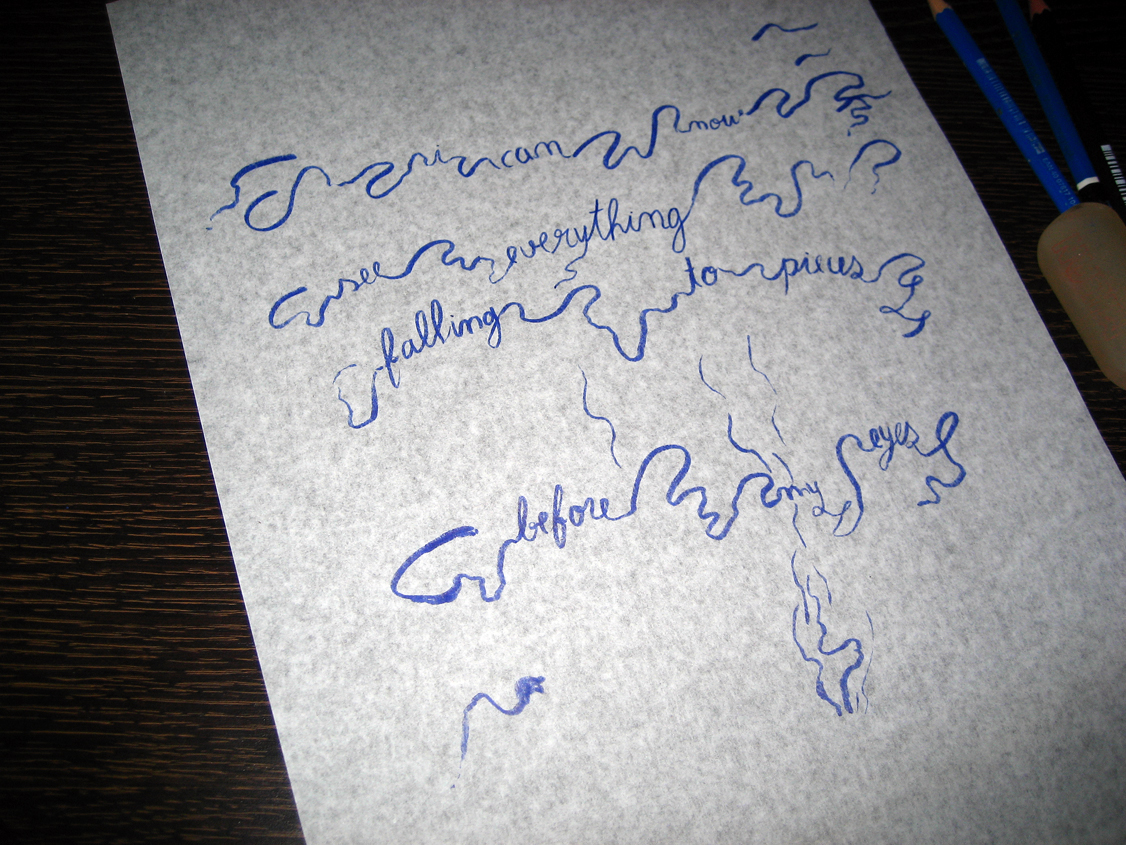 i can now
see everything
falling to pieces
before my eyes